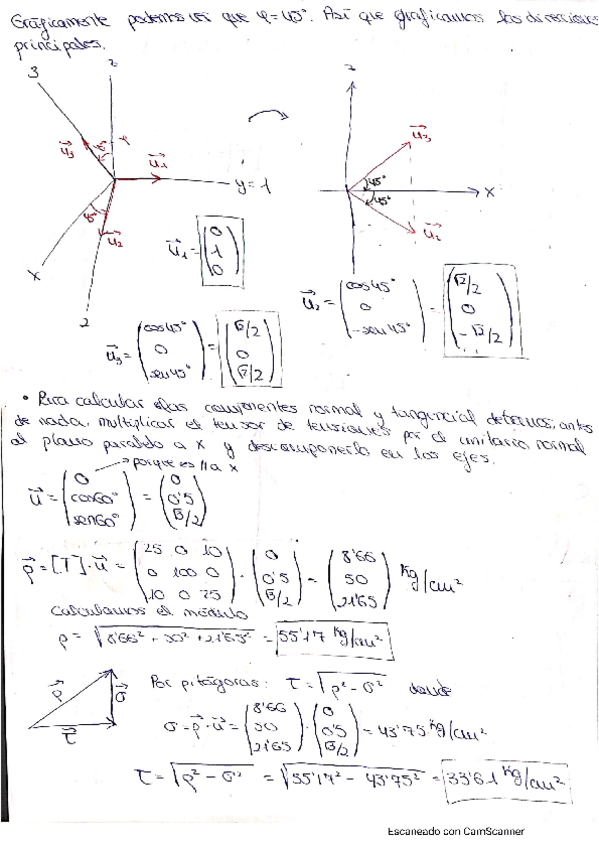 Gráficamente podemos ver que φ=45°. Así que graficamos las direcciones
principales.
3
z
z
u₃
45°
u₁
y=1
45°
u₂
x
2
u₃
45°
45°
x
u₂
u₁ = (0 1 0)
u₂ = (cos45° 0 -sen45°) = (√2/2 0 -√2/2)
u₃ = (cos45° 0 sen45°) = (√2/2 0 √2/2)
• Para calcular las componentes normal y tangencial debemos, antes
de nada, multiplicar el tensor de tensiones por el unitario normal
al plano paralelo a x y descomponerlo en los ejes.
porque es // a x
u = (0 cos60° sen60°) = (0 0'5 √3/2)
ρ = [T]·u = (25 0 10 0 100 0 10 0 25) · (0 0'5 √3/2) = (8'66 50 21'65) Kg/cm²
Calculamos el módulo
ρ = √8'66² + 50² + 21'65² = 55'17 Kg/cm²
ρ
σ
τ
Por pitágoras: τ = √ρ² - σ² donde
σ = ρ·u = (8'66 50 21'65) · (0 0'5 √3/2) = 43'75 Kg/cm²
τ = √ρ² - σ² = √55'17² - 43'75² = 33'61 Kg/cm²
Escaneado con CamScanner